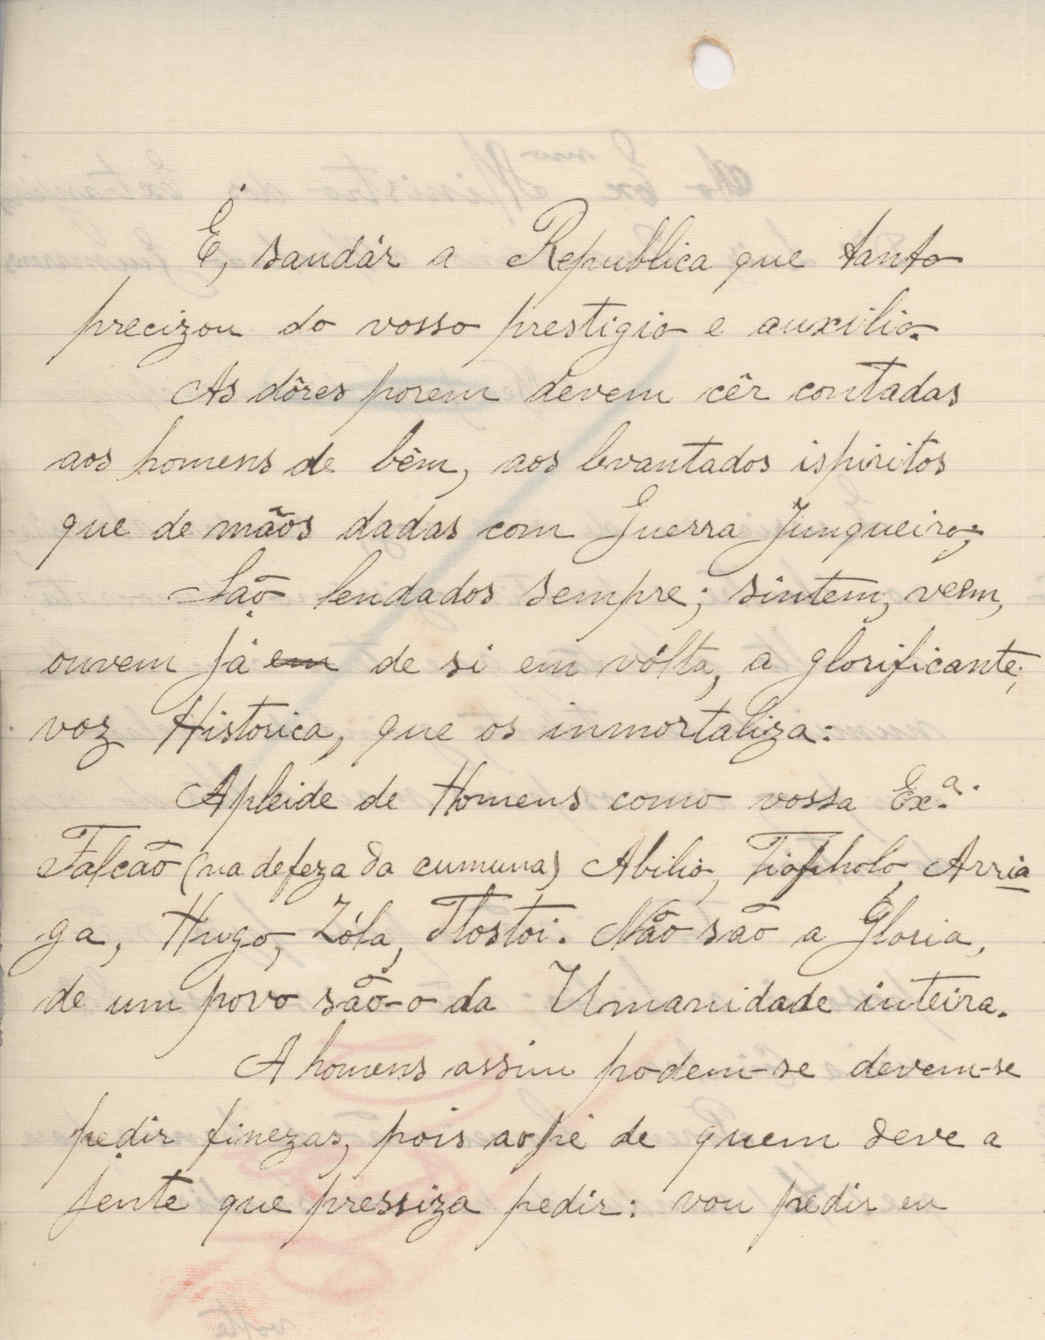 E, saudár a Republica que tanto
precizou do vosso prestigio e auxilio.
As dôres porem devem cêr contadas
aos homens de bêm, aos levantados ispiritos
que de mãos dadas com Guerra Junqueiro;
São lendados sempre; sintem, veem,
ouvem já em de si em vólta, a glorificante,
voz Historica, que os inmortaliza:
A pleide de Homens como vossa Ex.ª
Falcão (na defeza da cumuna) Abilio, Tiopholo, Arria
ga, Hugo, Zóla, Tlostoi. Não são a Gloria,
de um povo são-o da Umanidade inteira.
A homens assim podem-se devem-se
pedir finezas, pois ao pé de quem deve a
jente que pressiza pedir: vou pedir eu